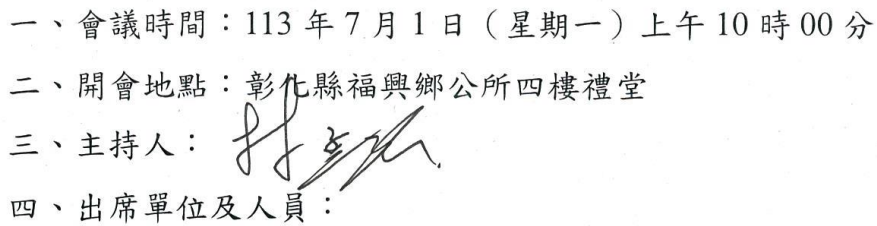 一、會議時間：113 年 7 月 1 日（星期一）上午 10 時 00 分
二、開會地點：彰化縣福興鄉公所四樓禮堂
三、主持人：林
四、出席單位及人員：